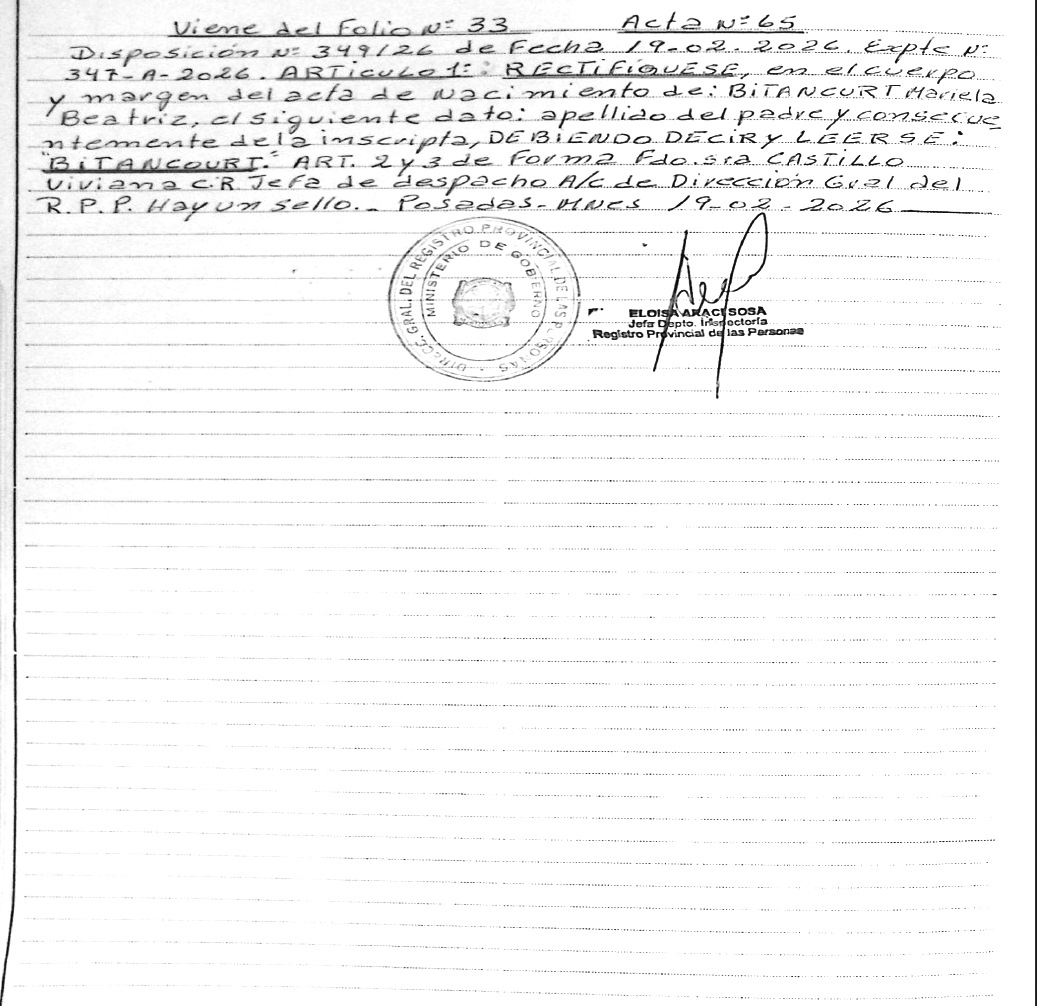 Viene del Folio Nº 33 Acta Nº 65
Disposición Nº 349/26 de Fecha 19-02.2026. Expte Nº
347-A-2026. ARTiculo 1º: RECTiFiQUESE, en el cuerpo
y margen del acta de Nacimiento de: BiTANCURT Mariela
Beatriz, el siguiente dato: apellido del padre y consecue
ntemente de la inscripta, DEBiENDO DECiR Y LEERSE:
"BiTANCOURT." ART. 2 y 3 de Forma Fdo. sra CASTiLLO
Viviana C.R. Jefa de despacho A/c de Dirección Gral del
R.P.P. Hay un sello._ Posadas-MNES 19-02-2026
DIRECC. GRAL. DEL REGISTRO PROVINCIAL DE LAS PERSONAS
MINISTERIO DE GOBIERNO
ELOISA ARACI SOSA
Jefa Dpto. Inspectoría
Registro Provincial de las Personas